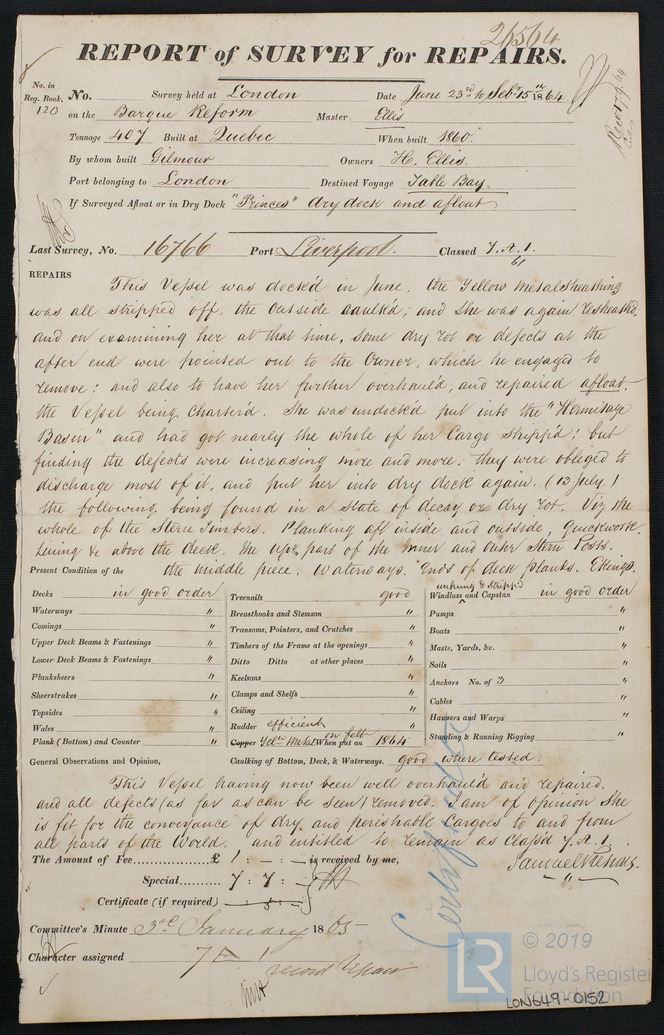 26564
REPORT of SURVEY for REPAIRS.
No. in Reg. Book, No. Survey held at London Date June 23rd to Feb. 15th 1864
120 on the Barque Reform Master Ellis
Tonnage 407 Built at Quebec When built 1860.
By whom built Gilmour Owners H. Ellis.
Port belonging to London Destined Voyage Table Bay.
If Surveyed Afloat or in Dry Dock "Princes" dry dock and afloat
Last Survey, No. 16766 Port Liverpool. Classed 7. A. 1.
61
REPAIRS
This Vessel was dock'd in June. the Yellow Metal Sheathing
was all stripped off. the Outside caulk'd; and she was again resheath'd,
and on examining her at that time, some dry rot or defects at the
after end were pointed out to the Owner, which he engaged to
remove: and also to have her further overhaul'd, and repaired afloat.
the Vessel being Charter'd. She was undock'd put into the "Hermitage
Basin" and had got nearly the whole of her Cargo shipp'd; but
finding the defects were increasing more and more: they were obliged to
discharge most of it, and put her into dry dock again. (13 July)
the following being found in a state of decay or dry rot. Viz the
whole of the Stern Timbers. Planking aft inside and outside, Quickwork.
Lining &c above the deck. the upr part of the Inner and Outer Stern Posts.
the middle piece. Waterways. Ends of deck planks. Ekeings.
Present Condition of the
Decks in good order
Waterways "
Comings "
Upper Deck Beams & Fastenings "
Lower Deck Beams & Fastenings "
Planksheers "
Sheerstrakes "
Topsides "
Wales "
Plank (Bottom) and Counter "
Treenails good
Breasthooks and Stemson "
Transoms, Pointers, and Crutches "
Timbers of the Frame at the openings "
Ditto Ditto at other places "
Keelsons "
Clamps and Shelfs "
Ceiling "
Rudder efficient "
Copper Yell. Metal on felt When put on 1864
Caulking of Bottom, Deck, & Waterways. good where tested.
unhung & stripp'd
Windlass and Capstan in good order
Pumps "
Boats "
Masts, Yards, &c. "
Sails "
Anchors No. of 3 "
Cables "
Hausers and Warps "
Standing & Running Rigging "
General Observations and Opinion,
This Vessel having now been well overhaul'd and repaired,
and all defects (as far as can be seen) removed. I am of opinion she
is fit for the conveyance of dry and perishable Cargoes to and from
all parts of the World. and entitled to remain as Class'd 7. A. 1.
The Amount of Fee £ 1 : – : – is received by me,
Special 7 : 7 : –
Certificate (if required) – : 5 : –
Committee's Minute 3rd January 1865
Character assigned 7 A 1
record Repair
Certif
© 2019
LR
Lloyd's Register
Foundation
LON649-0152